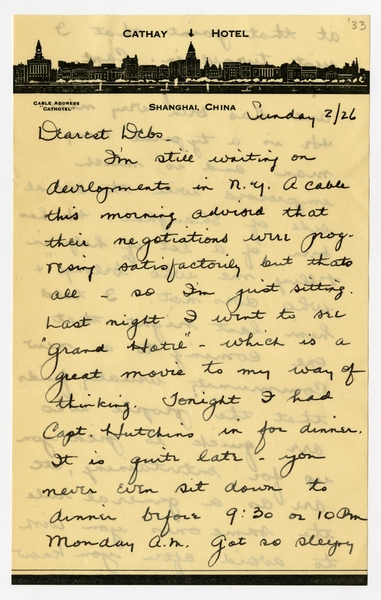 '33
CATHAY HOTEL
CABLE ADDRESS
"CATHOTEL"
SHANGHAI, CHINA
Sunday 2/26
Dearest Debs -
I'm still waiting on
developments in N.Y. A cable
this morning advised that
their negotiations were prog-
resing satisfactorily but thats
all - so I'm just sitting.
Last night I went to see
"Grand Hotel" - which is a
great movie to my way of
thinking. Tonight I had
Capt. Hutchins in for dinner.
It is quite late - you
never even sit down to
dinner before 9:30 or 10 PM
Monday A.M. Got so sleepy